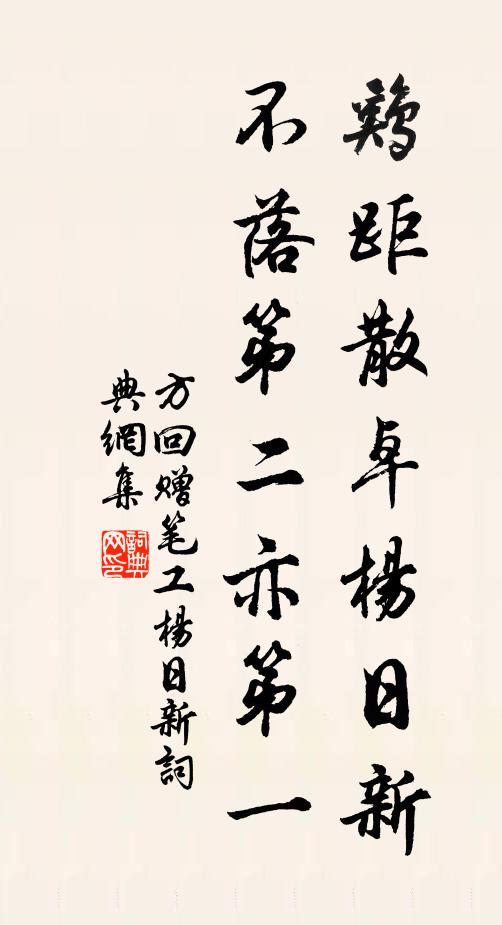 鷄距散卓楊日新
不落第二亦第一
方回赠笔工楊日新詞
典網集
詞典网印